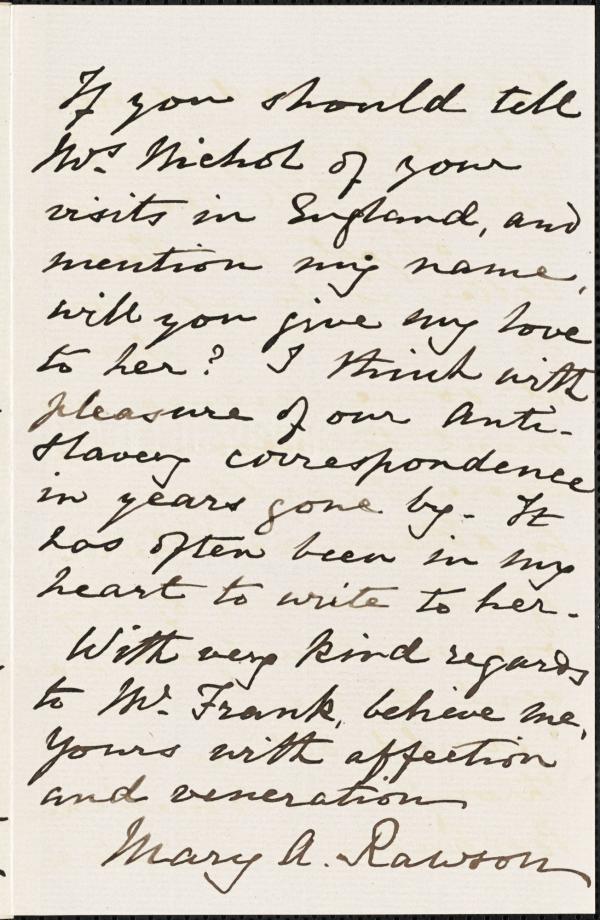 If you should tell
Mrs. Nichol of your
visits in England, and
mention my name,
will you give my love
to her? I think with
pleasure of our Anti-
Slavery correspondence
in years gone by. It
has often been in my
heart to write to her.
With very kind regards
to Mr. Frank, believe me,
Yours with affection
and veneration
Mary A. Rawson